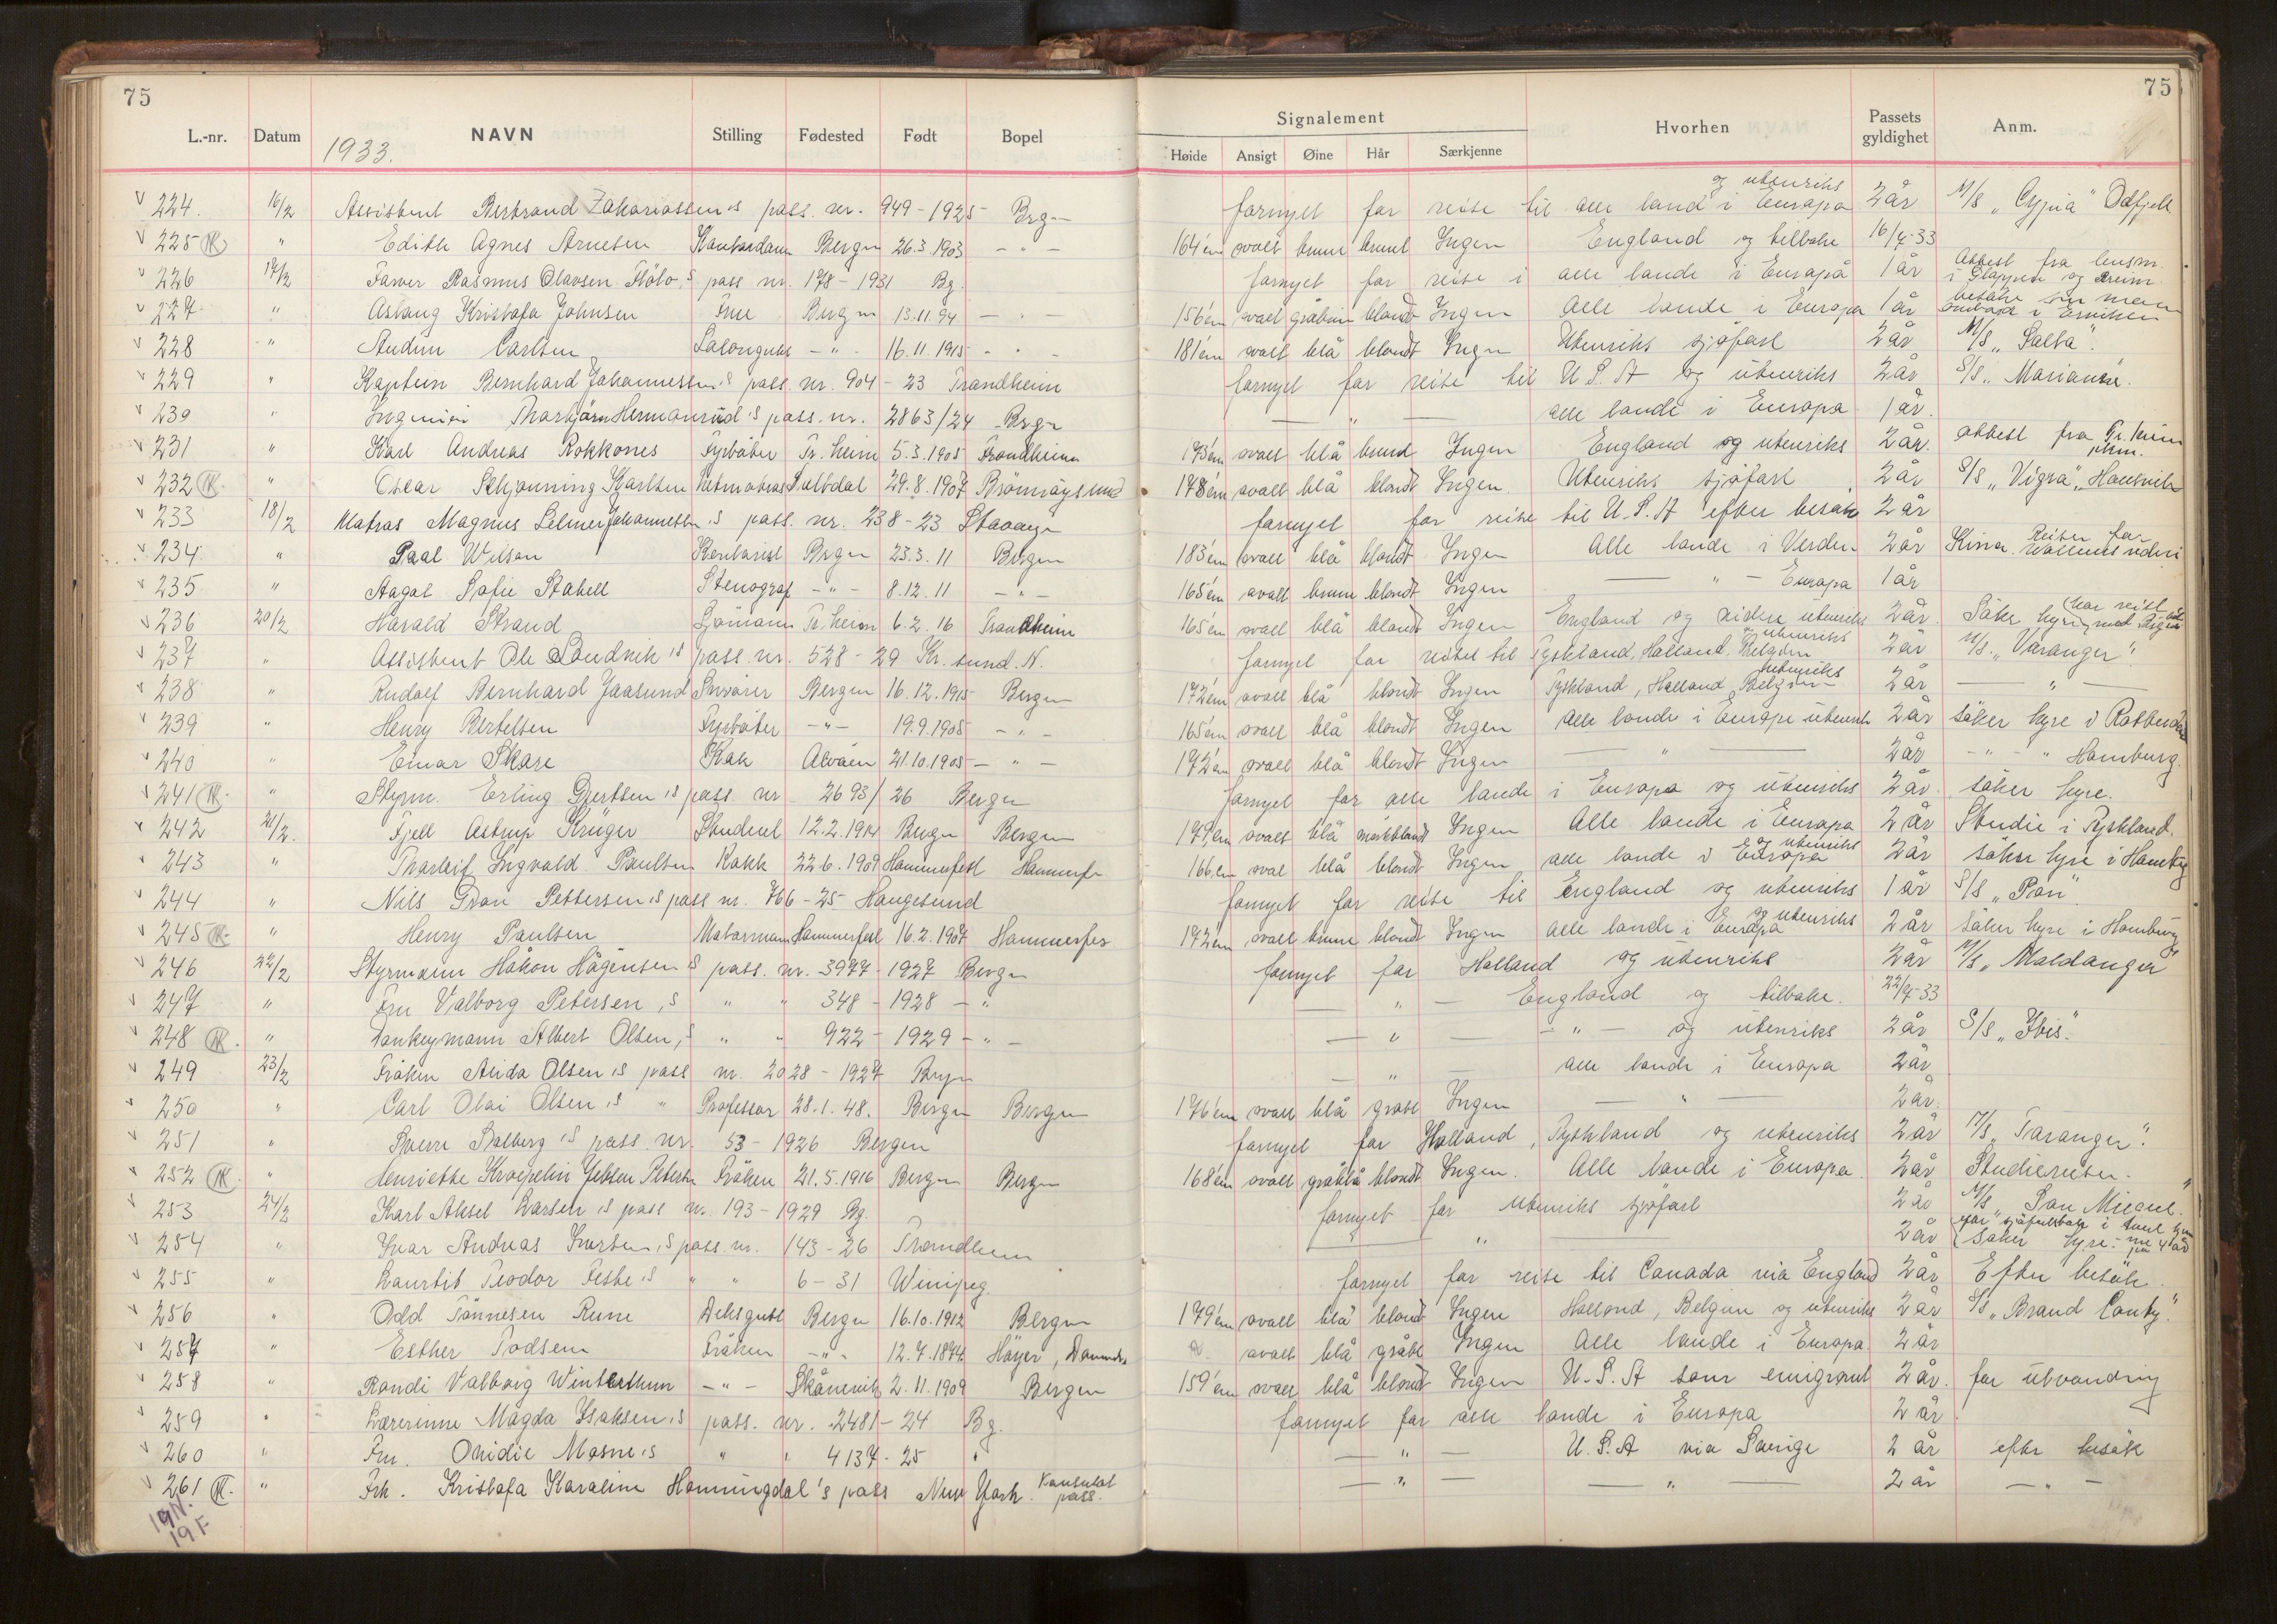 75 75
Signalement
L.-nr. Datum NAVN Stilling Fødested Født Bopel Høide Ansigt Øine Hår Særkjenne Hvorhen Passets gyldighet Anm.
1933.
224. 16/2 Assistent Bertrand Zakariassen's pass. nr. 949-1925 Brgn fornyet for reise til alle land i Europa og utenriks 2 år M/S „Cypria" Odfjell
225 " Edith Agnes Arnesen Kontordame Bergn 26.3.1903 - " - 164 cm ovalt brune brunt Ingen England og tilbake 16/4-33
226 17/2 Farver Rasmus Olavsen 's pass nr. 178-1931 Bg. fornyet for reise i alle lande i Europa 1 år Attest fra lensm.
227 " Aslaug Kristofa Johnsen Frue Bergn 13.11.94 - " - 156 cm ovalt gråbrun blondt Ingen Alle lande i Europa 1 år besøke sin mann
228 " Audun Carlsen Salongutt - " - 16.11.1915 - " - 181 cm ovalt blå blondt Ingen Utenriks sjøfart 2 år M/S „Salta".
229 " Kaptein Bernhard Johannessen's pass. nr. 904-23 Trondheim fornyet for reise til U.S.A og utenriks 2 år S/S „Marianne".
230 " Ingeniør Thorbjørn Hermansrud's pass. nr. 2863/24 Bergn - " - alle lande i Europa 1 år.
231 " Karl Andreas Rokkones Fyrbøter Tr.heim 5.3.1905 Trondheim 173 cm ovalt blå brund Ingen England og utenriks 2 år. attest fra Tr.heim pkm.
232 " Oscar Schjønning Karlsen Letmatros Saltdal 29.8.1907 Brønnøysund 178 cm ovalt blå blondt Ingen Utenriks sjøfart 2 år S/S „Vigra", Hansvik
233 18/2 Matros Magnus Selmer Johannessen's pass. nr. 238-23 Stavangr fornyet for reise til U.S.A efter besøk 2 år
234 " Paal Wilson Kontorist Brgn 23.3.11 Bergen 183 cm ovalt blå blondt Ingen Alle lande i Verden 2 år Kina. Reiser for Wallems rederi
235 " Aagot Sofie Stabell Stenograf - " - 8.12.11 - " - 165 cm ovalt brune blondt Ingen - " - Europa 1 år
236 20/2 Harald Strand Sjømann Tr.heim 6.2.16 Trondheim 165 cm ovalt blå blondt Ingen England og videre utenriks 2 år. Søke hyre (har reist
237 " Assistent Ole Sandvik's pass. nr. 528-29 Kr.sund.N. fornyet for reise til Tyskland, Holland, Belgien og utenriks 2 år M/S. „Varanger".
238 " Rudolf Bernhard Jaasund Smører Bergen 16.12.1915 Bergen 172 cm ovalt blå blondt Ingen Tyskland, Holland, Belgien utenriks 2 år - " -
239 " Henry Bertelsen Fyrbøter - " - 19.9.1905 - " - 165 cm ovalt blå blondt Ingen alle lande i Europa utenriks 2 år søker hyre i Rotterdam
240 " Einar Skare Kok Alvøen 21.10.1905 - " - 172 cm ovalt blå blondt Ingen - " - 2 år - " - " Hamburg.
241 " Styrm. Erling Gjertsen's pass. nr 2693/26 Bergn fornyet for alle lande i Europa og utenriks 2 år. søker hyre.
242 21/2. Fjell Astrup Krüger Student 12.2.1914 Bergn Bergen 177 cm ovalt blå mørkblondt Ingen Alle lande i Europa 2 år Studie i Tyskland.
243 " Thorleif Ingvald Paulsen Kokk 22.6.1909 Hammerfest Hammerf. 166 cm oval blå blondt Ingen alle lande i Europa og utenriks 2 år søker hyre i Hambg
244 " Nils Gran Pettersen's pass nr. 766-25 Haugesund fornyet for reise til England og utenriks 1 år S/S „Pan"
245 " Henry Paulsen Motormann Hammerfest 16.2.1907 Hammerfes 172 cm ovalt brune blondt Ingen alle lande i Europa og utenriks 2 år søker hyre i Hamburg
246 22/2 Styrmann Håkon Hågensen's pass. nr. 3977-1927 Bergn fornyet for Holland og utenriks 2 år M/S „Maldanger"
247 " Fru Valborg Petersen,s " " 348-1928 - " - " - England og tilbake. 22/4-33
248 " Donkeymann Albert Olsen,s " " 922-1929 - " - - " - - " - og utenriks 2 år S/S „Ibis".
249 23/2 Frøken Alida Olsen's pass nr. 2028-1927 Brgn - " - alle lande i Europa 2 år
250 " Carl Olai Olsen's " Professor 28.1.48. Bergn Bergn 176 cm ovalt blå grått Ingen - " - 2 år.
251 " Sverre Dalberg's pass. nr. 53-1926 Bergen fornyet for Holland, Tyskland og utenriks 2 år M/S „Taranger".
252 " Henriette Krogelin Jebsen Petersn Frøken 21.5.1916 Bergen Bergn 168 cm ovalt gråblå blondt Ingen. Alle lande i Europa. 2 år Studiereiser.
253 24/2 Karl Aksel Larsen's pass nr. 193-1929 Bg. fornyet for Utenriks sjøfart 2 år M/S San Miguel."
254 " Ivar Andreas Iversen,s pass. nr. 143-26 Trondheim - " - 2 år søker hyre.
255 " Lauritz Teodor Feste's " " 6-31 Winipeg. fornyet for reise til Canada via England 2 år Efter besøk.
256 " Odd Tønnesen Rune Deksgutt Bergn 16.10.1912 Bergen 179 cm ovalt blå blondt Ingen Holland, Belgien og utenriks 2 år S/S „Brand County".
257 " Esther Todsen Frøken - " - 12.7.1874 Høyer, Danmark ovalt blå grått Ingen Alle lande i Europa 2 år
258 " Randi Valborg Winterthun - " - Skånevik 2.11.1909 Bergen 159 cm ovalt blå blondt Ingen U.S.A som emigrant 2 år. for utvandring
259 " Lærerinne Magda Isaksen's pass. nr. 2481-24 Bg. fornyet for alle lande i Europa 2 år.
260 " Fru. Ovidie Mosne's " " 4137-25 " - " - U.S.A via Sverige 2 år efter besøk
261 " Frk. Kristofa Karoline Hommingdal's pass New York. Konsulat pass. - " - - " - 2 år - " -
19N.
19F